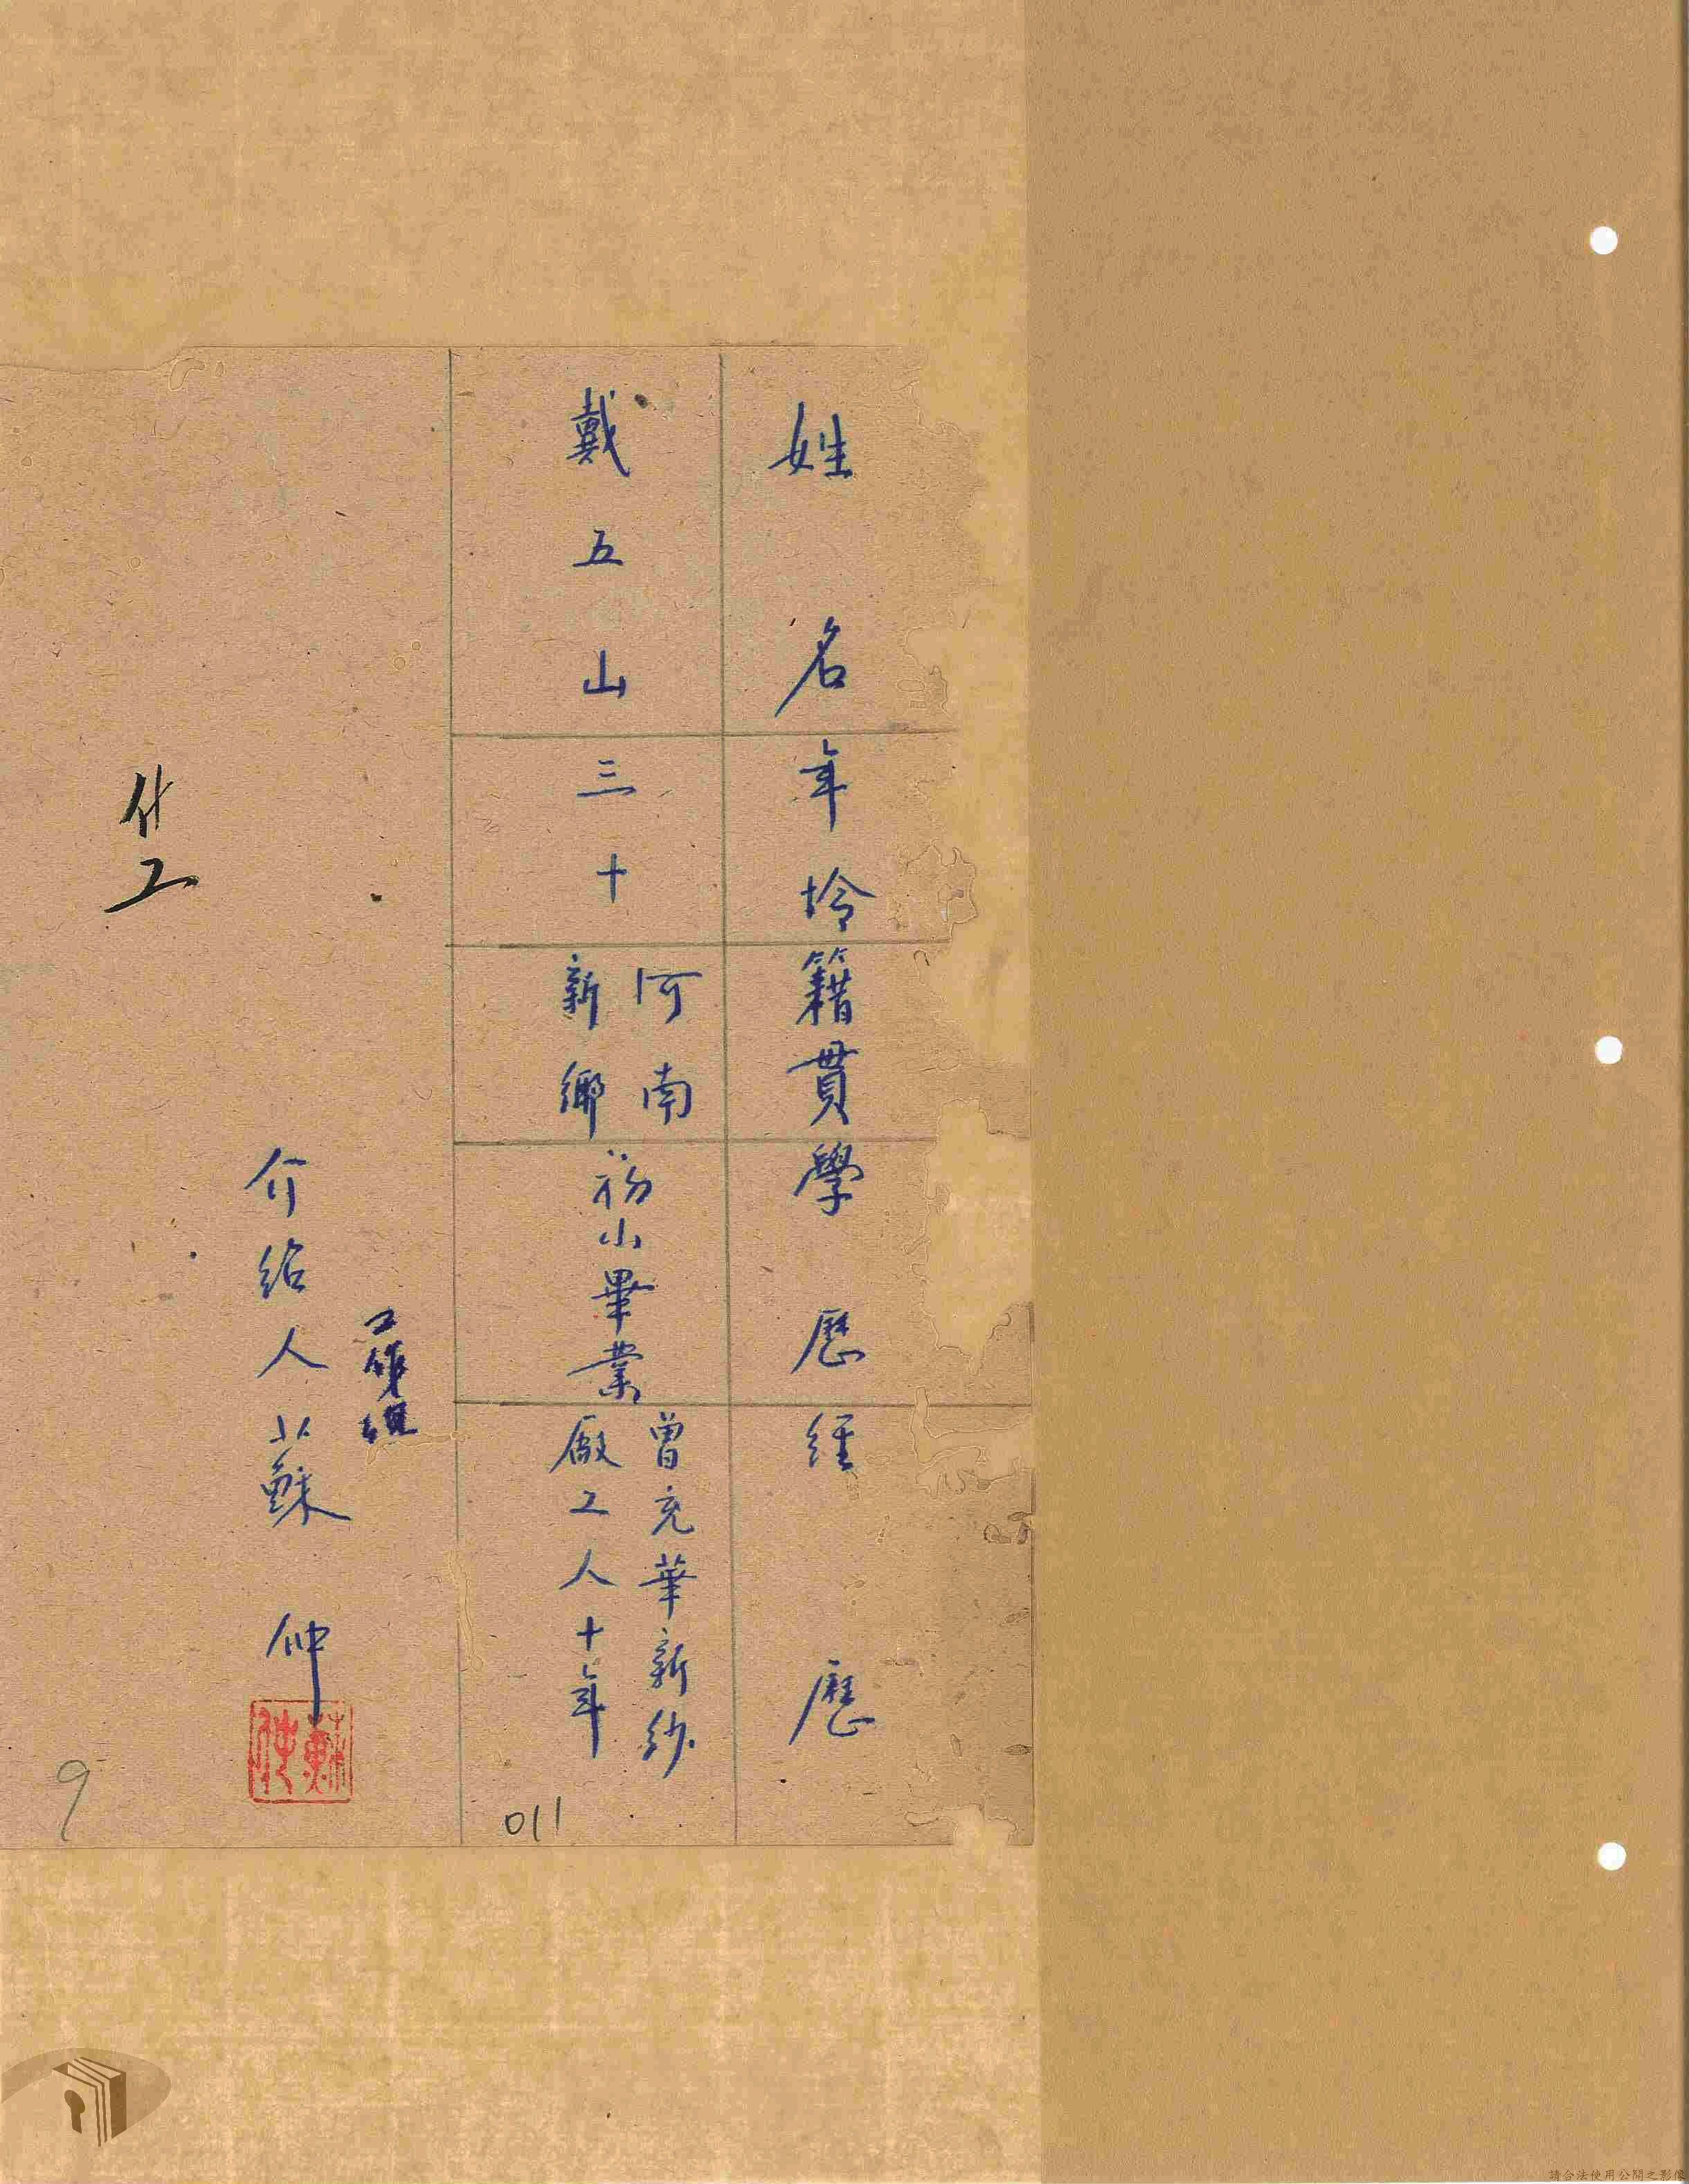 姓名
年齡
籍貫
學歷
經歷
戴五山
三十
河南
新鄉
初小畢業
曾充華新紗
廠工人十年
介紹人蘇 仲
什工
011
9
請合法使用公開之影像